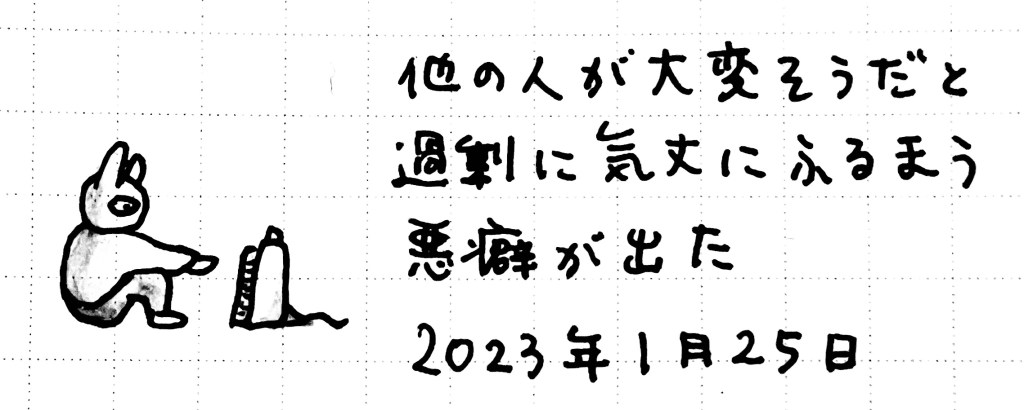 他の人が大変そうだと
過剰に気丈にふるまう
悪癖が出た
2023年1月25日